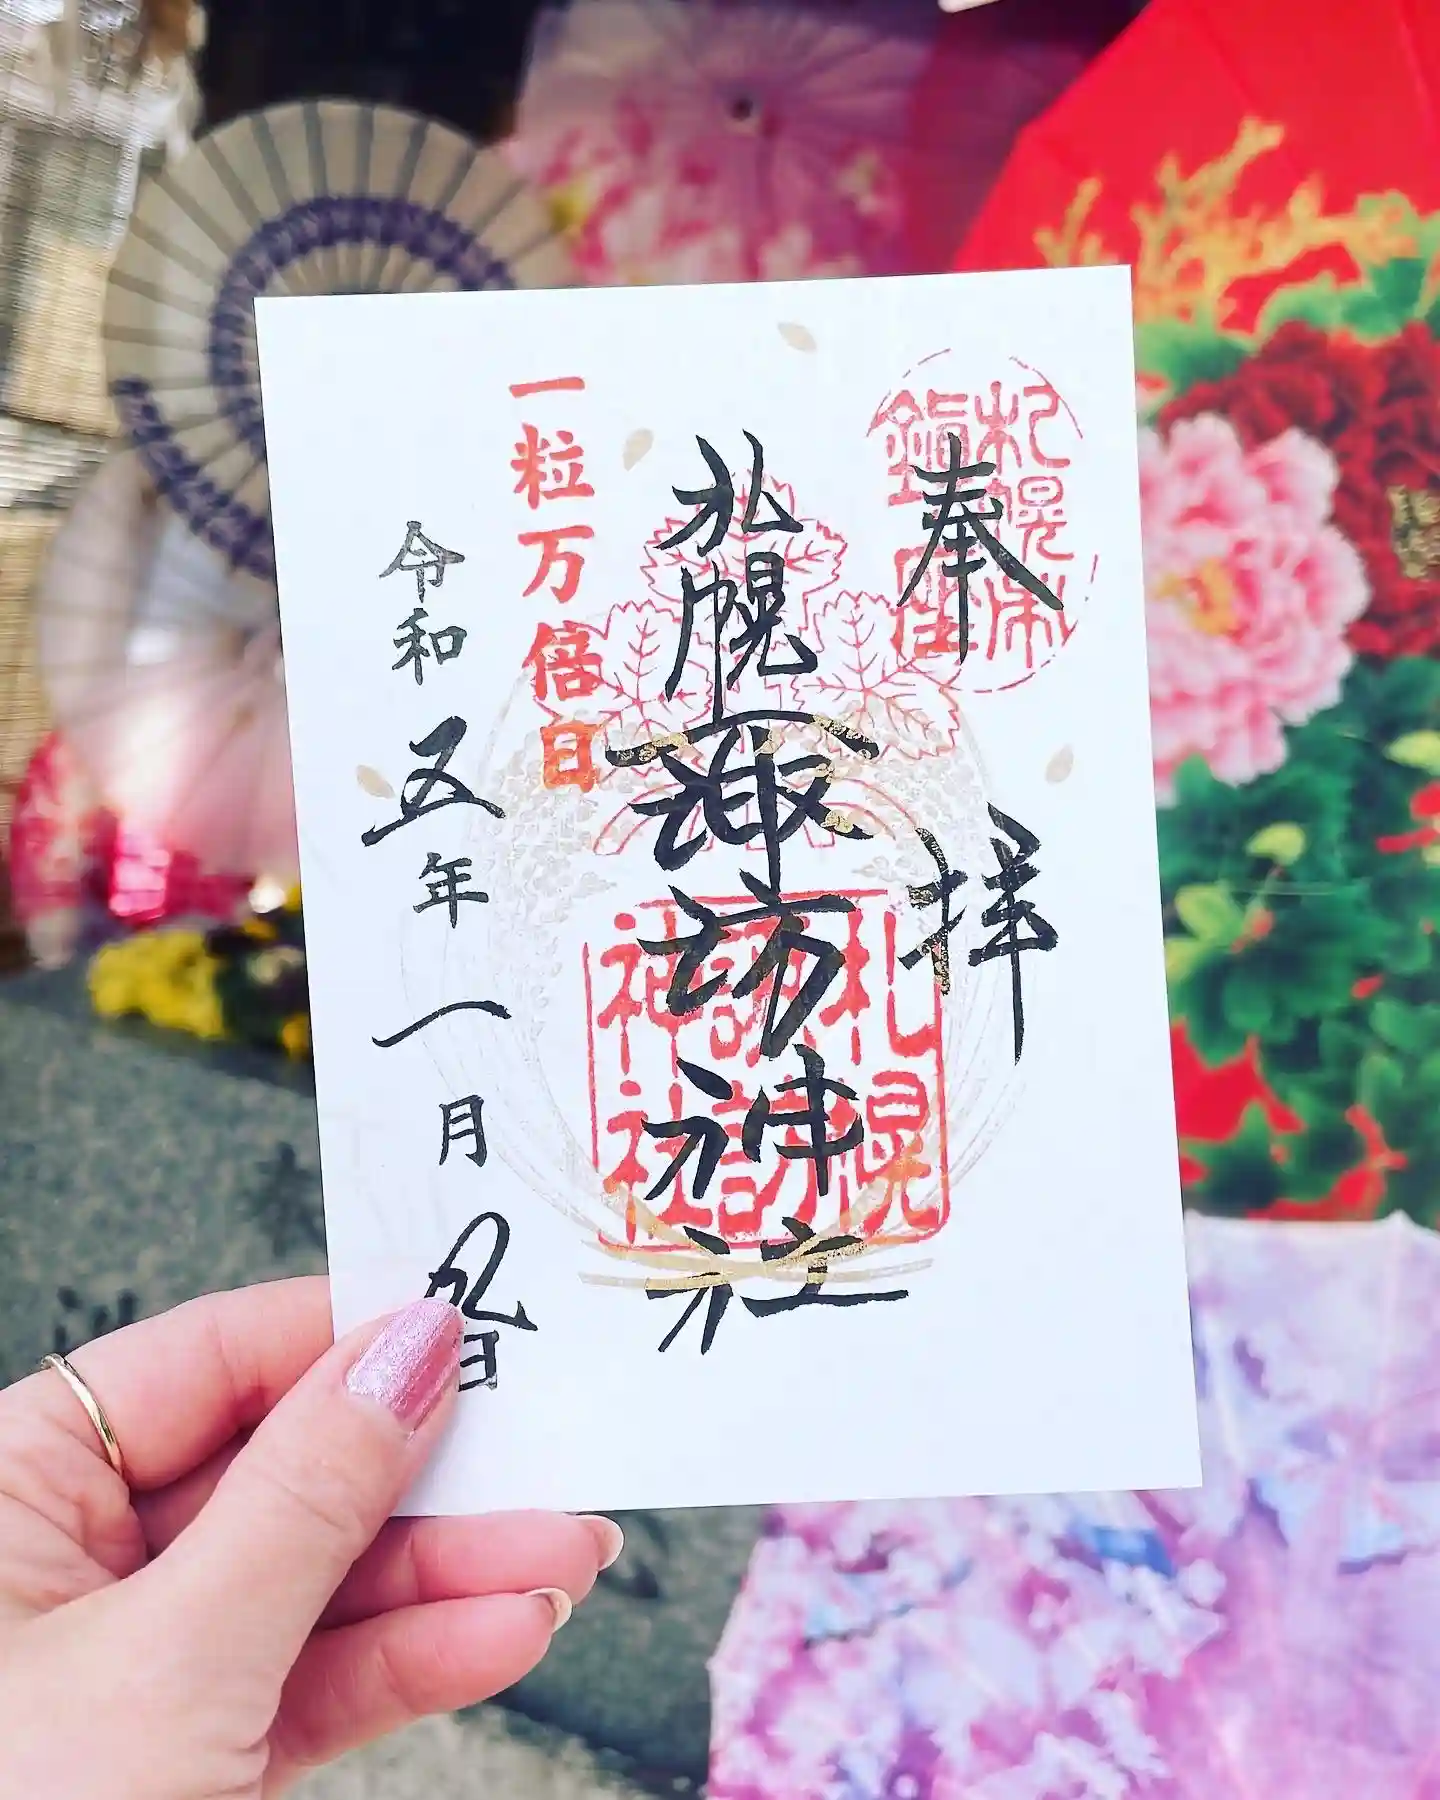 奉拝
札幌市
鎮座
札幌諏訪神社
札幌
諏訪
神社
一粒万倍日
令和五年一月日